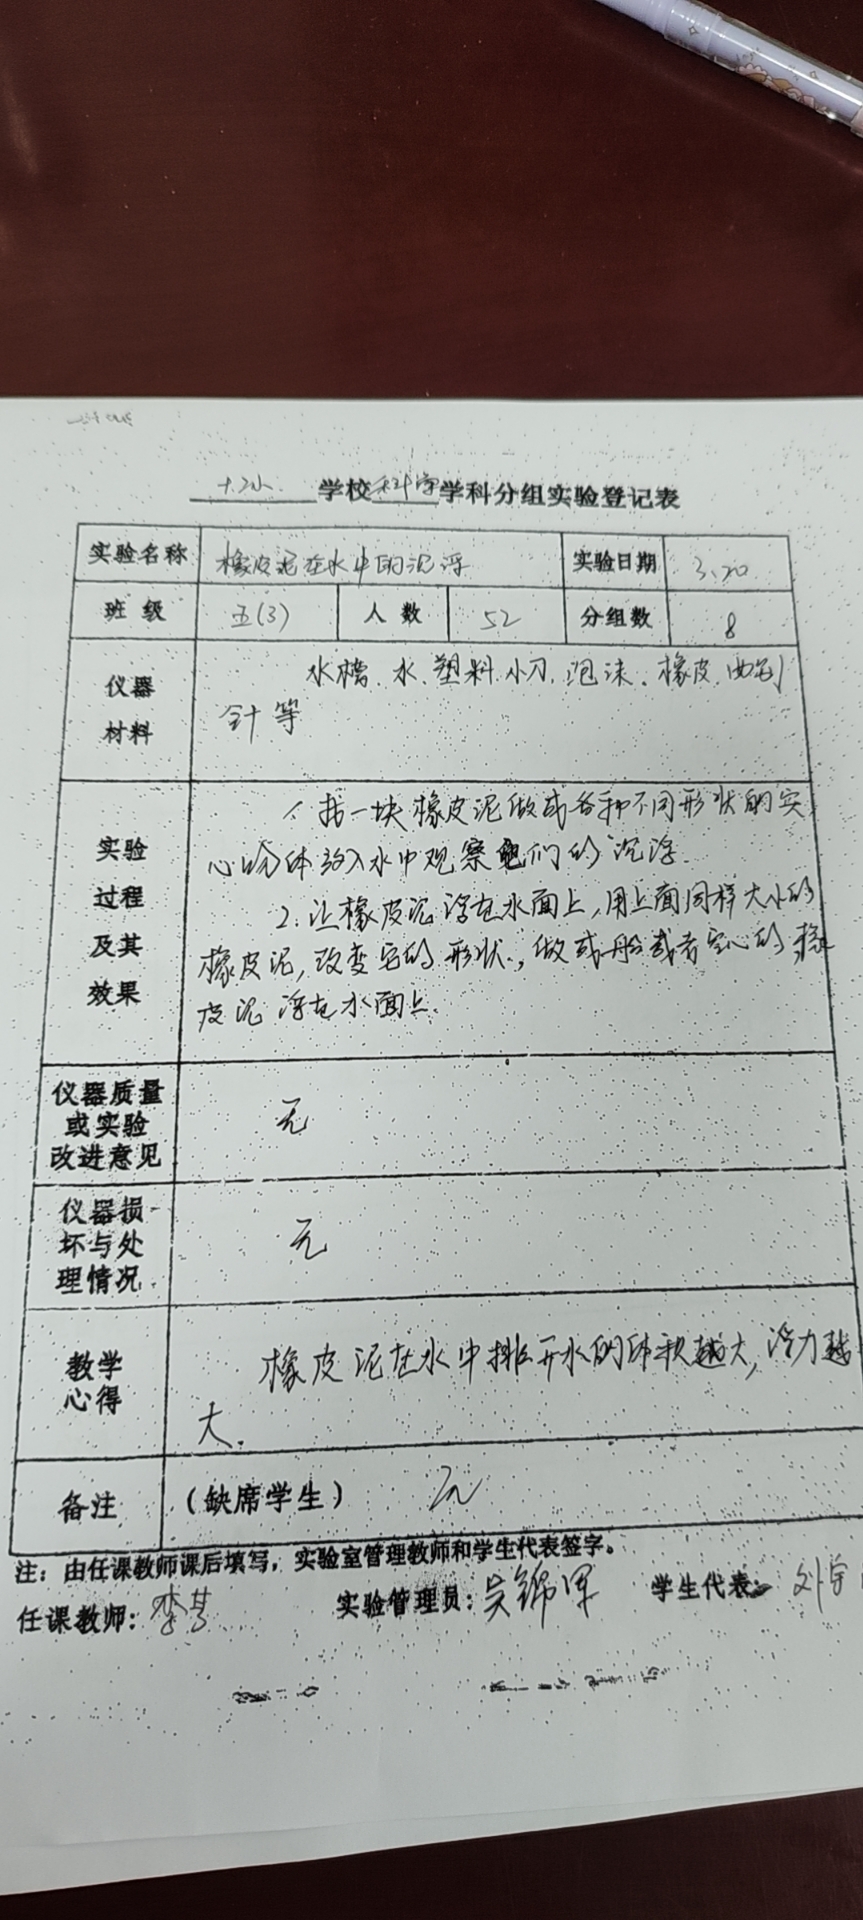 学校科学学科分组实验登记表
实验名称 橡皮泥在水中的沉浮 实验日期 3.20
班 级 五(3) 人 数 52 分组数 8
仪器
材料
水槽、水、塑料小刀、泡沫、橡皮、
针 等
实验
过程
及其
效果
1、 一块橡皮泥做成各种不同形状的实
心物体放入水中观察它们的沉浮.
2. 让橡皮泥浮在水面上,用上面同样大小的
橡皮泥,改变它的形状,做成船或者空心的橡
皮泥浮在水面上.
仪器质量
或实验
改进意见
无
仪器损
坏与处
理情况
无
教学
心得
橡皮泥在水中排开水的体积越大,浮力越
大.
备注 (缺席学生) 无
注:由任课教师课后填写,实验室管理教师和学生代表签字。
任课教师: 实验管理员:吴锦 学生代表: